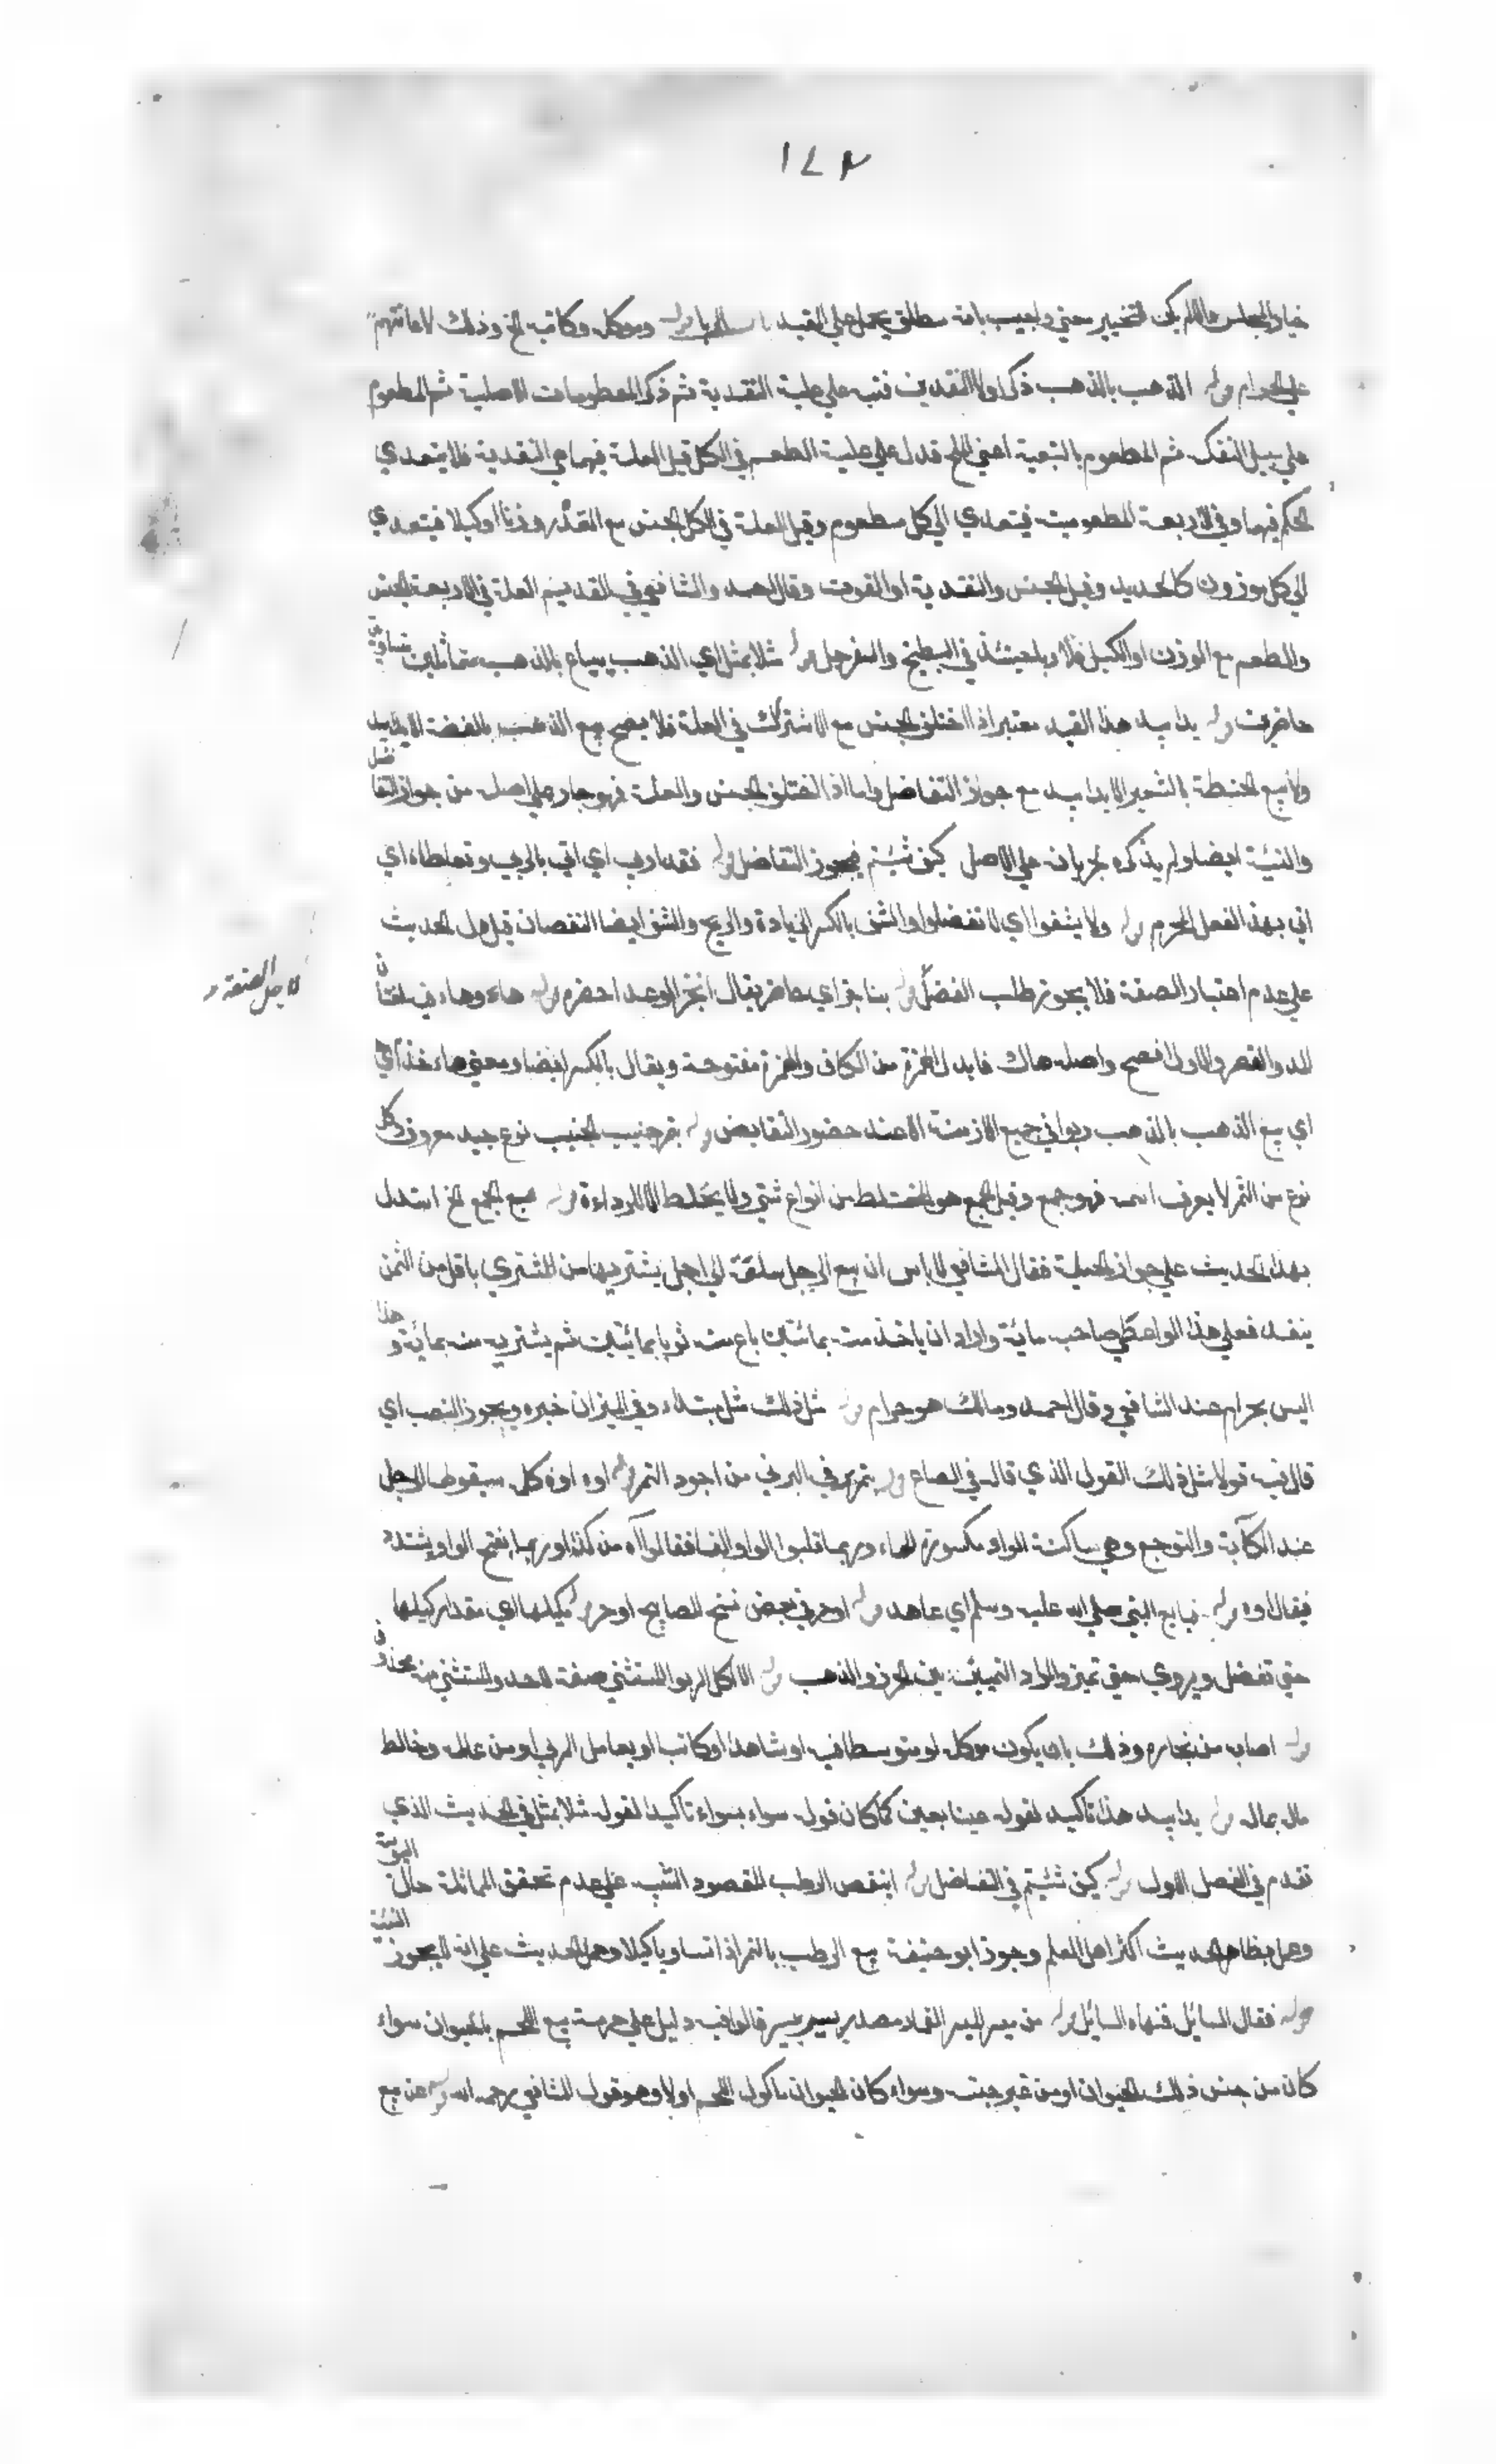 ١٤٢
خيار المجلس والا لم يكن للتخيير معنى واجيب بانه مطلق يحمل على المقيد باب الربا قوله وموكله وكاتبه الخ وذلك لاعانتهم
على الحرام قوله الذهب بالذهب ذكر اولا النقدين فنبه على علية النقدية ثم ذكر المطعومات الاصلية ثم المطعوم
على سبيل التفكه ثم المطعوم بالتبعية اعني الملح فدل على علية الطعم في الكل قيل العلة فيهما هي النقدية فلا يتعدي
الحكم فيهما وفي الاربعة المطعومية فيتعدي الي كل مطعوم وقيل العلة في الكل الجنس مع القدر وزنا او كيلا فيتعدي
الي كل موزون كالحديد وقيل الجنس والنقدية او القوت وقال احمد والشافعي في القديم العلة في الاربعة الجنس
والطعم مع الوزن او الكيل فلا ربا حينئذ في البطيخ والسفرجل قوله مثلا بمثل اي الذهب يباع بالذهب متماثلين متساويين
حاضرين قوله يدا بيد هذا القيد معتبر اذا اختلف الجنس مع الاشتراك في العلة فلا يصح بيع الذهب بالفضة الا يدا بيد
ولا بيع الحنطة بالشعير الا يدا بيد مع جواز التفاضل واما اذا اختلف الجنس والعلة فهو جار على اصله من جواز التفاضل
والنسيئة ايضا ولم يذكره لجريانه على الاصل كيف شئتم فيجوز التفاضل قوله فقد اربي اي اتي بالربي وتعاطاه اي
اتي بهذا الفعل المحرم قوله ولا يشفوا اي لا تفضلوا والشف بالكسر الزيادة والربح والشف ايضا النقصان قيل دل الحديث
على عدم اعتبار الصفة فلا يجوز طلب الفضل قوله بناجز اي حاضر يقال انجز الوعد احضره قوله هاء وهاء فيه لغتان
لاجل الصنعة
المد والقصر والاول افصح واصله هاك فابدل الهمزة من الكاف والهمزة مفتوحة ويقال بالكسر ايضا ومعنى هاء خذ اي
اي بيع الذهب بالذهب ربوا في جميع الازمنة الا عند حضور التقابض قوله بتمر جنيب الجنيب نوع جيد معروف وكل
نوع من التمر لا يعرف اسمه فهو جمع وقيل الجمع هو المختلط من انواع شتي ولا يخلط الا للرداءة قوله بيع الجمع الخ استدل
بهذا الحديث على جواز الحيلة فقال الشافعي لا باس ان يبيع الرجل سلعة الي اجل يشتريها من المشتري باقل من الثمن
بنقد فعلي هذا الواعطي صاحبه ماية واراد ان ياخذ منه بمائتين باع منه ثوبا بمائتين ثم يشتريه منه بماية وهذا
ليس بحرام عند الشافعي وقال احمد ومالك هو حرام قوله مثل ذلك مثل مبتداء وفي الميزان خبره ويجوز النصب اي
قال فيه قولا مثل ذلك القول الذي قاله في الصاع قوله بتمر برني البرني من اجود التمر قوله اوه اوه كلمة يقولها الرجل
عند الكآبة والتوجع وهي ساكنة الواو مكسورة الهاء وربما قلبوا الواو الفا فقالوا آه من كذا وربما بفتح الواو ويشدد
فيقال اوه قوله فبايع النبي صلي الله عليه وسلم اي عاهد قوله او حر في بعض نسخ المصابيح او حر قوله مكيلها اي مقدار كيلها
حتي تفصل ويروي حتي تميز والمراد التمييز بين الخرز والذهب قوله الا اكل الربوا المستثني صفة لاحد والمستثني منه محذوف
قوله اصابه من بخاره وذلك بان يكون موكلا او متوسطا فيه او شاهدا او كاتبا او يعامل المربي او من عامله وخالط
ماله بماله قوله يدا بيد هذا تاكيد لقوله عينا بعين كما كان قوله سواء بسواء تاكيدا لقوله مثلا بمثل في الحديث الذي
تقدم في الفصل الاول قوله كيف شئتم في التفاضل قوله اينقص الرطب المقصود التنبيه على عدم تحقق المماثلة حال اليبوسة
وعمل بظاهر الحديث اكثر اهل العلم وجوز ابو حنيفة بيع الرطب بالتمر اذا تساويا كيلا وحمل الحديث على انه لا يجوز النسيئة
قوله فقال السايل فنهاه السايل قوله من ميسر الميسر القمار مصدر يسر ييسر قالوا فيه دليل على حرمة بيع اللحم بالحيوان سواء
كان من جنس ذلك الحيوان او من غير جنسه وسواء كان الحيوان ماكول اللحم اولا وهو قول الشافعي رحمه الله قوله عن بيع